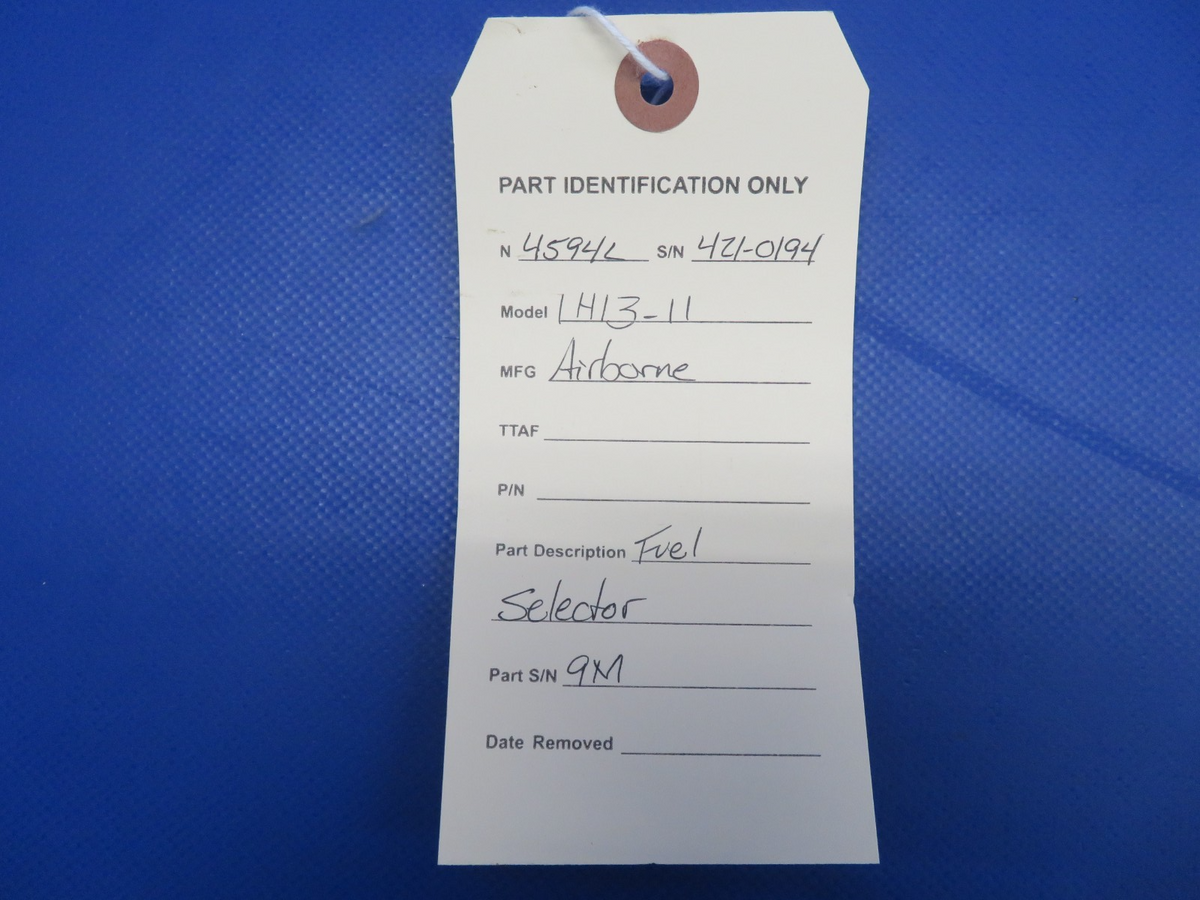 PART IDENTIFICATION ONLY
N 4594L S/N 421-0194
Model 1H13-11
MFG Airborne
TTAF
P/N
Part Description Fuel
Selector
Part S/N 9M
Date Removed